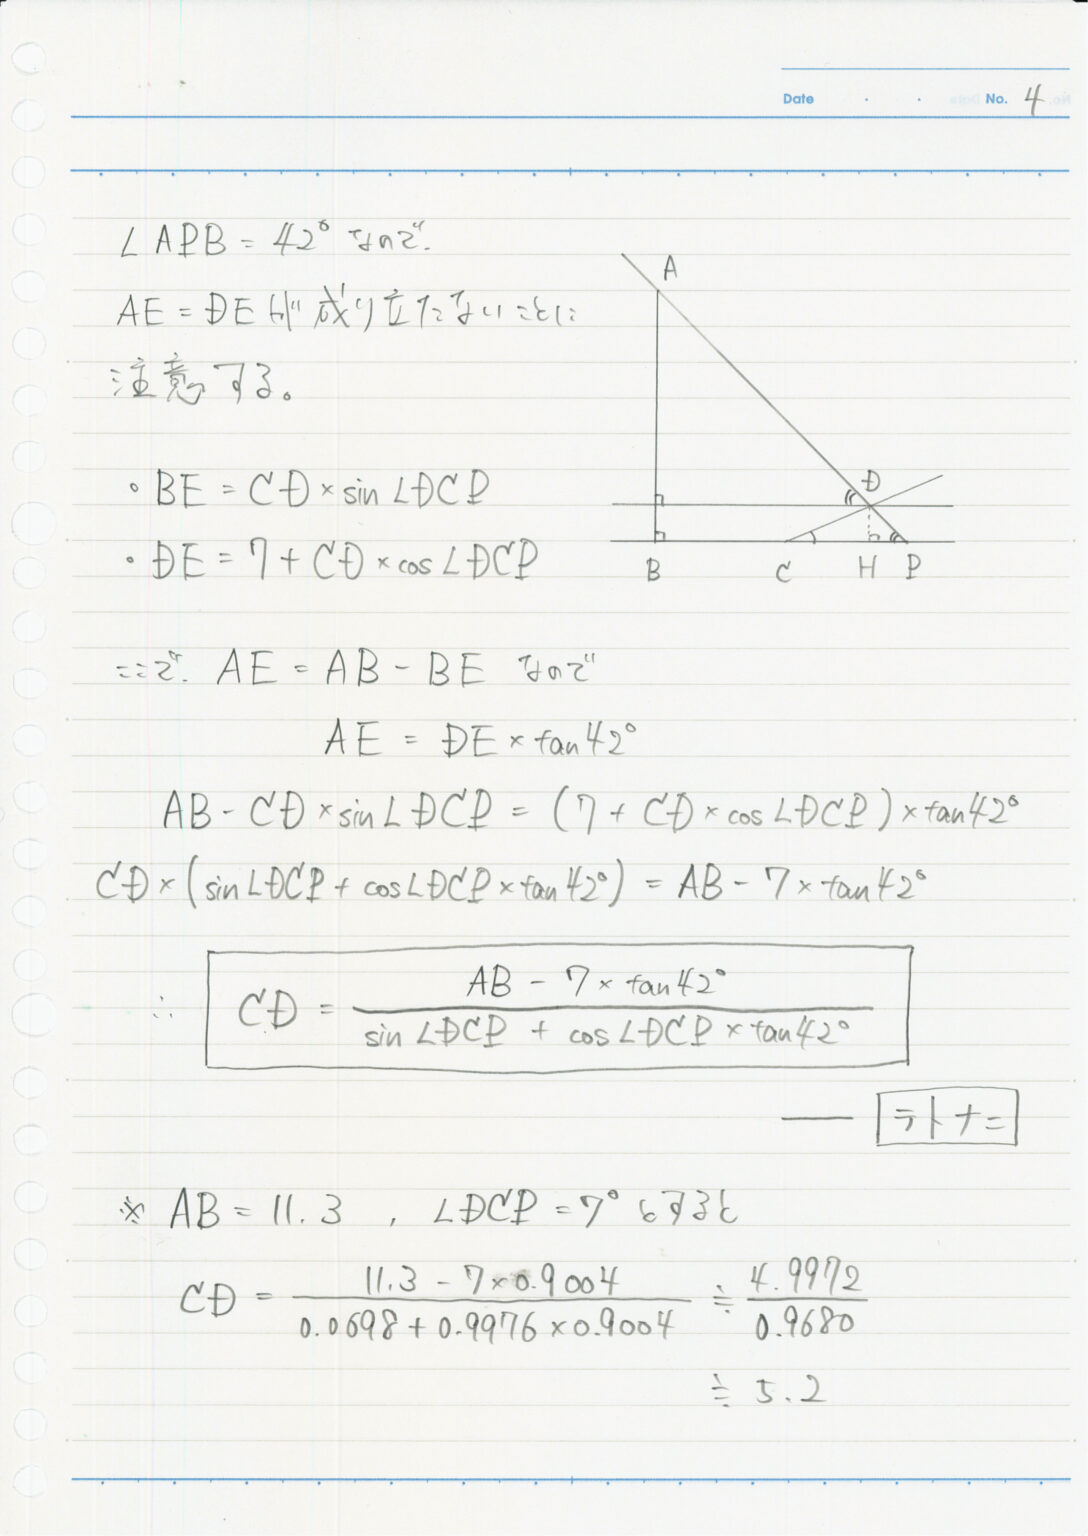 Date ・ ・ No. 4
∠APB = 42° なので、
AE = DE が成り立たないことに
注意する。
・BE = CD × sin∠DCP
・DE = 7 + CD × cos∠DCP
A
D
B C H P
ここで、AE = AB - BE なので
AE = DE × tan42°
AB - CD × sin∠DCP = (7 + CD × cos∠DCP) × tan42°
CD × (sin∠DCP + cos∠DCP × tan42°) = AB - 7 × tan42°
∴ CD = (AB - 7 × tan42°) / (sin∠DCP + cos∠DCP × tan42°)
── テトナニ
※ AB = 11.3 , ∠DCP = 7° とすると
CD = (11.3 - 7×0.9004) / (0.0698 + 0.9976 × 0.9004) ≒ 4.9972 / 0.9680
≒ 5.2